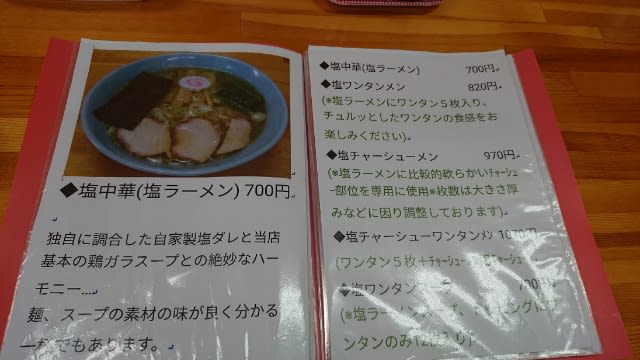 ◆塩中華(塩ラーメン) 700円
独自に調合した自家製塩ダレと当店
基本の鶏ガラスープとの絶妙なハー
モニー...
麺、スープの素材の味が良く分かる
でもあります。
◆塩中華(塩ラーメン) 700円
◆塩ワンタンメン 820円
(※塩ラーメンにワンタン5枚入り、
チュルッとしたワンタンの食感をお
楽しみください)
◆塩チャーシューメン 970円
(※塩ラーメンに比較的軟らかいチャーシュ
ー部位を専用に使用※枚数は大きさ厚
みなどに因り調整しております)
◆塩チャーシューワンタンメン
(ワンタン5枚+チャーシュー
◆塩ワンタン
(※塩ラーメンスープ、
ンタンのみ12枚入り)